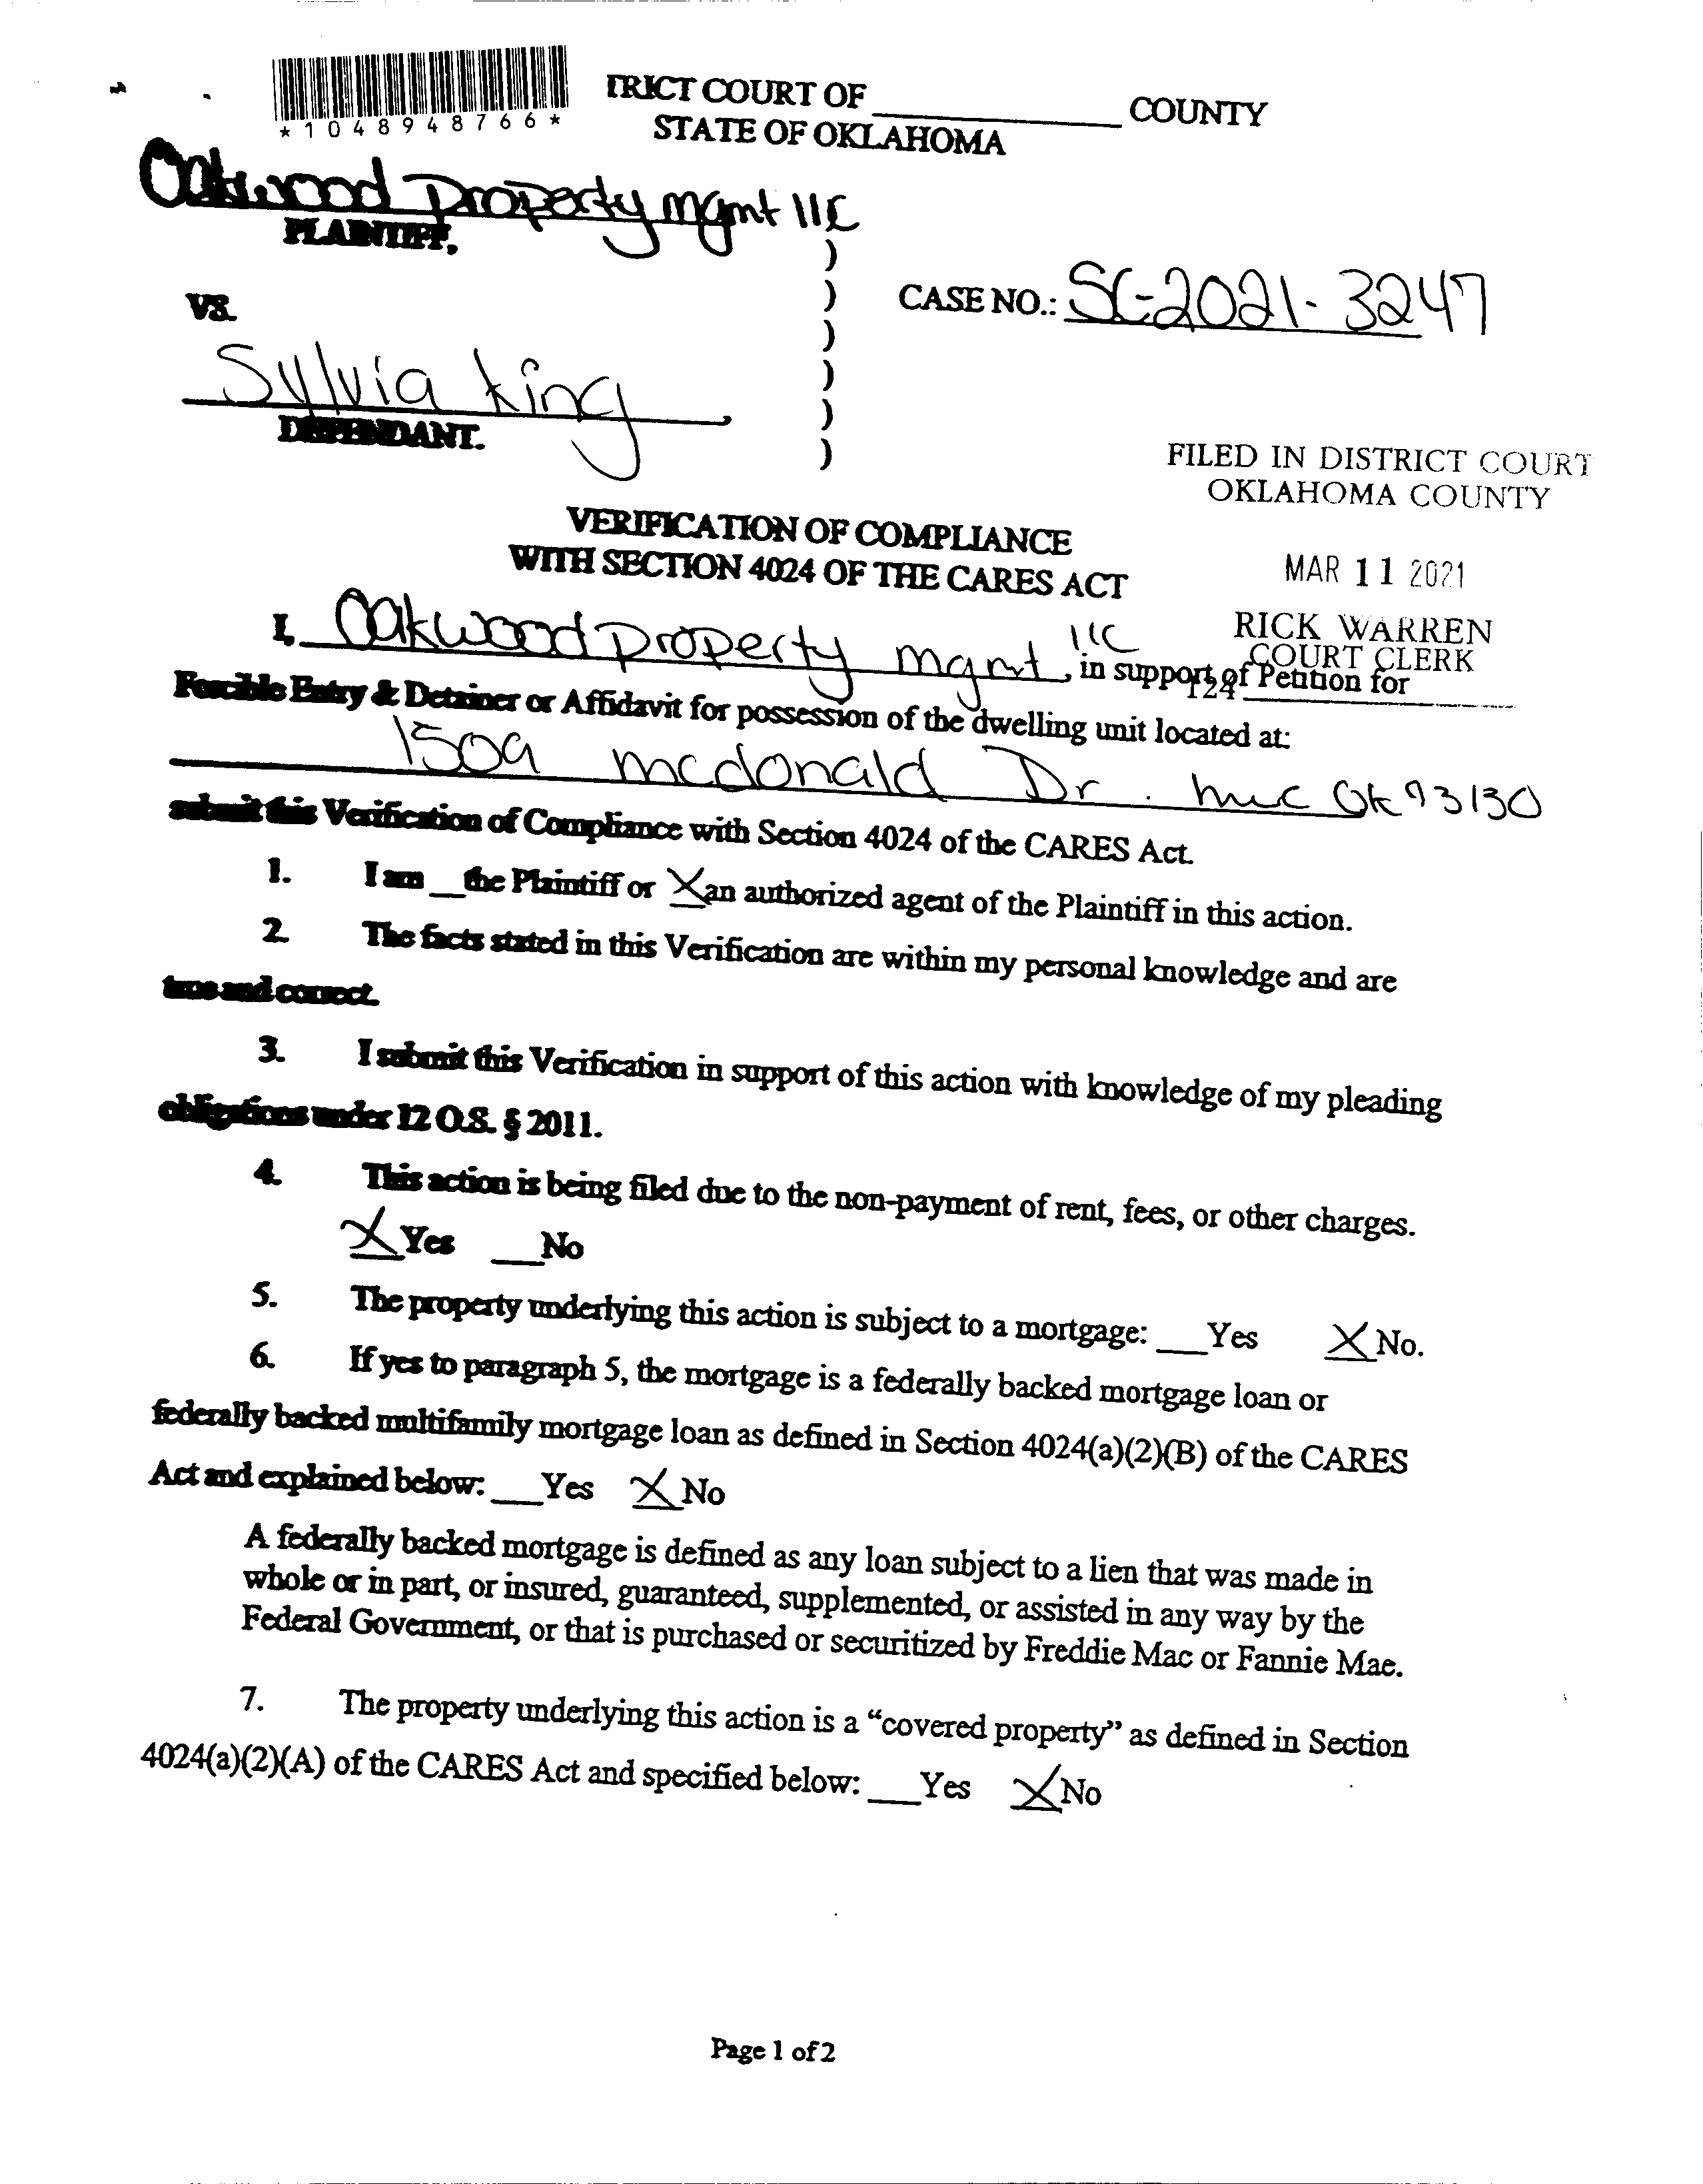 *1048948766*
TRICT COURT OF ____________ COUNTY
STATE OF OKLAHOMA
Oakwood Property mgmt llc
PLAINTIFF,
)
VS.
)
CASE NO.: SC-2021-3247
)
Sylvia King,
)
DEFENDANT.
)
)
FILED IN DISTRICT COURT
OKLAHOMA COUNTY
MAR 11 2021
RICK WARREN
COURT CLERK
124
VERIFICATION OF COMPLIANCE
WITH SECTION 4024 OF THE CARES ACT
I, Oakwood property mgmt llc, in support of Petition for
Forcible Entry & Detainer or Affidavit for possession of the dwelling unit located at:
1509 mcdonald Dr. mwc Ok 73130
submit this Verification of Compliance with Section 4024 of the CARES Act.
1. I am __the Plaintiff or X an authorized agent of the Plaintiff in this action.
2. The facts stated in this Verification are within my personal knowledge and are
true and correct.
3. I submit this Verification in support of this action with knowledge of my pleading
obligations under 12 O.S. § 2011.
4. This action is being filed due to the non-payment of rent, fees, or other charges.
X Yes ___No
5. The property underlying this action is subject to a mortgage: ___Yes X No.
6. If yes to paragraph 5, the mortgage is a federally backed mortgage loan or
federally backed multifamily mortgage loan as defined in Section 4024(a)(2)(B) of the CARES
Act and explained below: ___Yes X No
A federally backed mortgage is defined as any loan subject to a lien that was made in
whole or in part, or insured, guaranteed, supplemented, or assisted in any way by the
Federal Government, or that is purchased or securitized by Freddie Mac or Fannie Mae.
7. The property underlying this action is a “covered property” as defined in Section
4024(a)(2)(A) of the CARES Act and specified below: ___Yes X No
Page 1 of 2